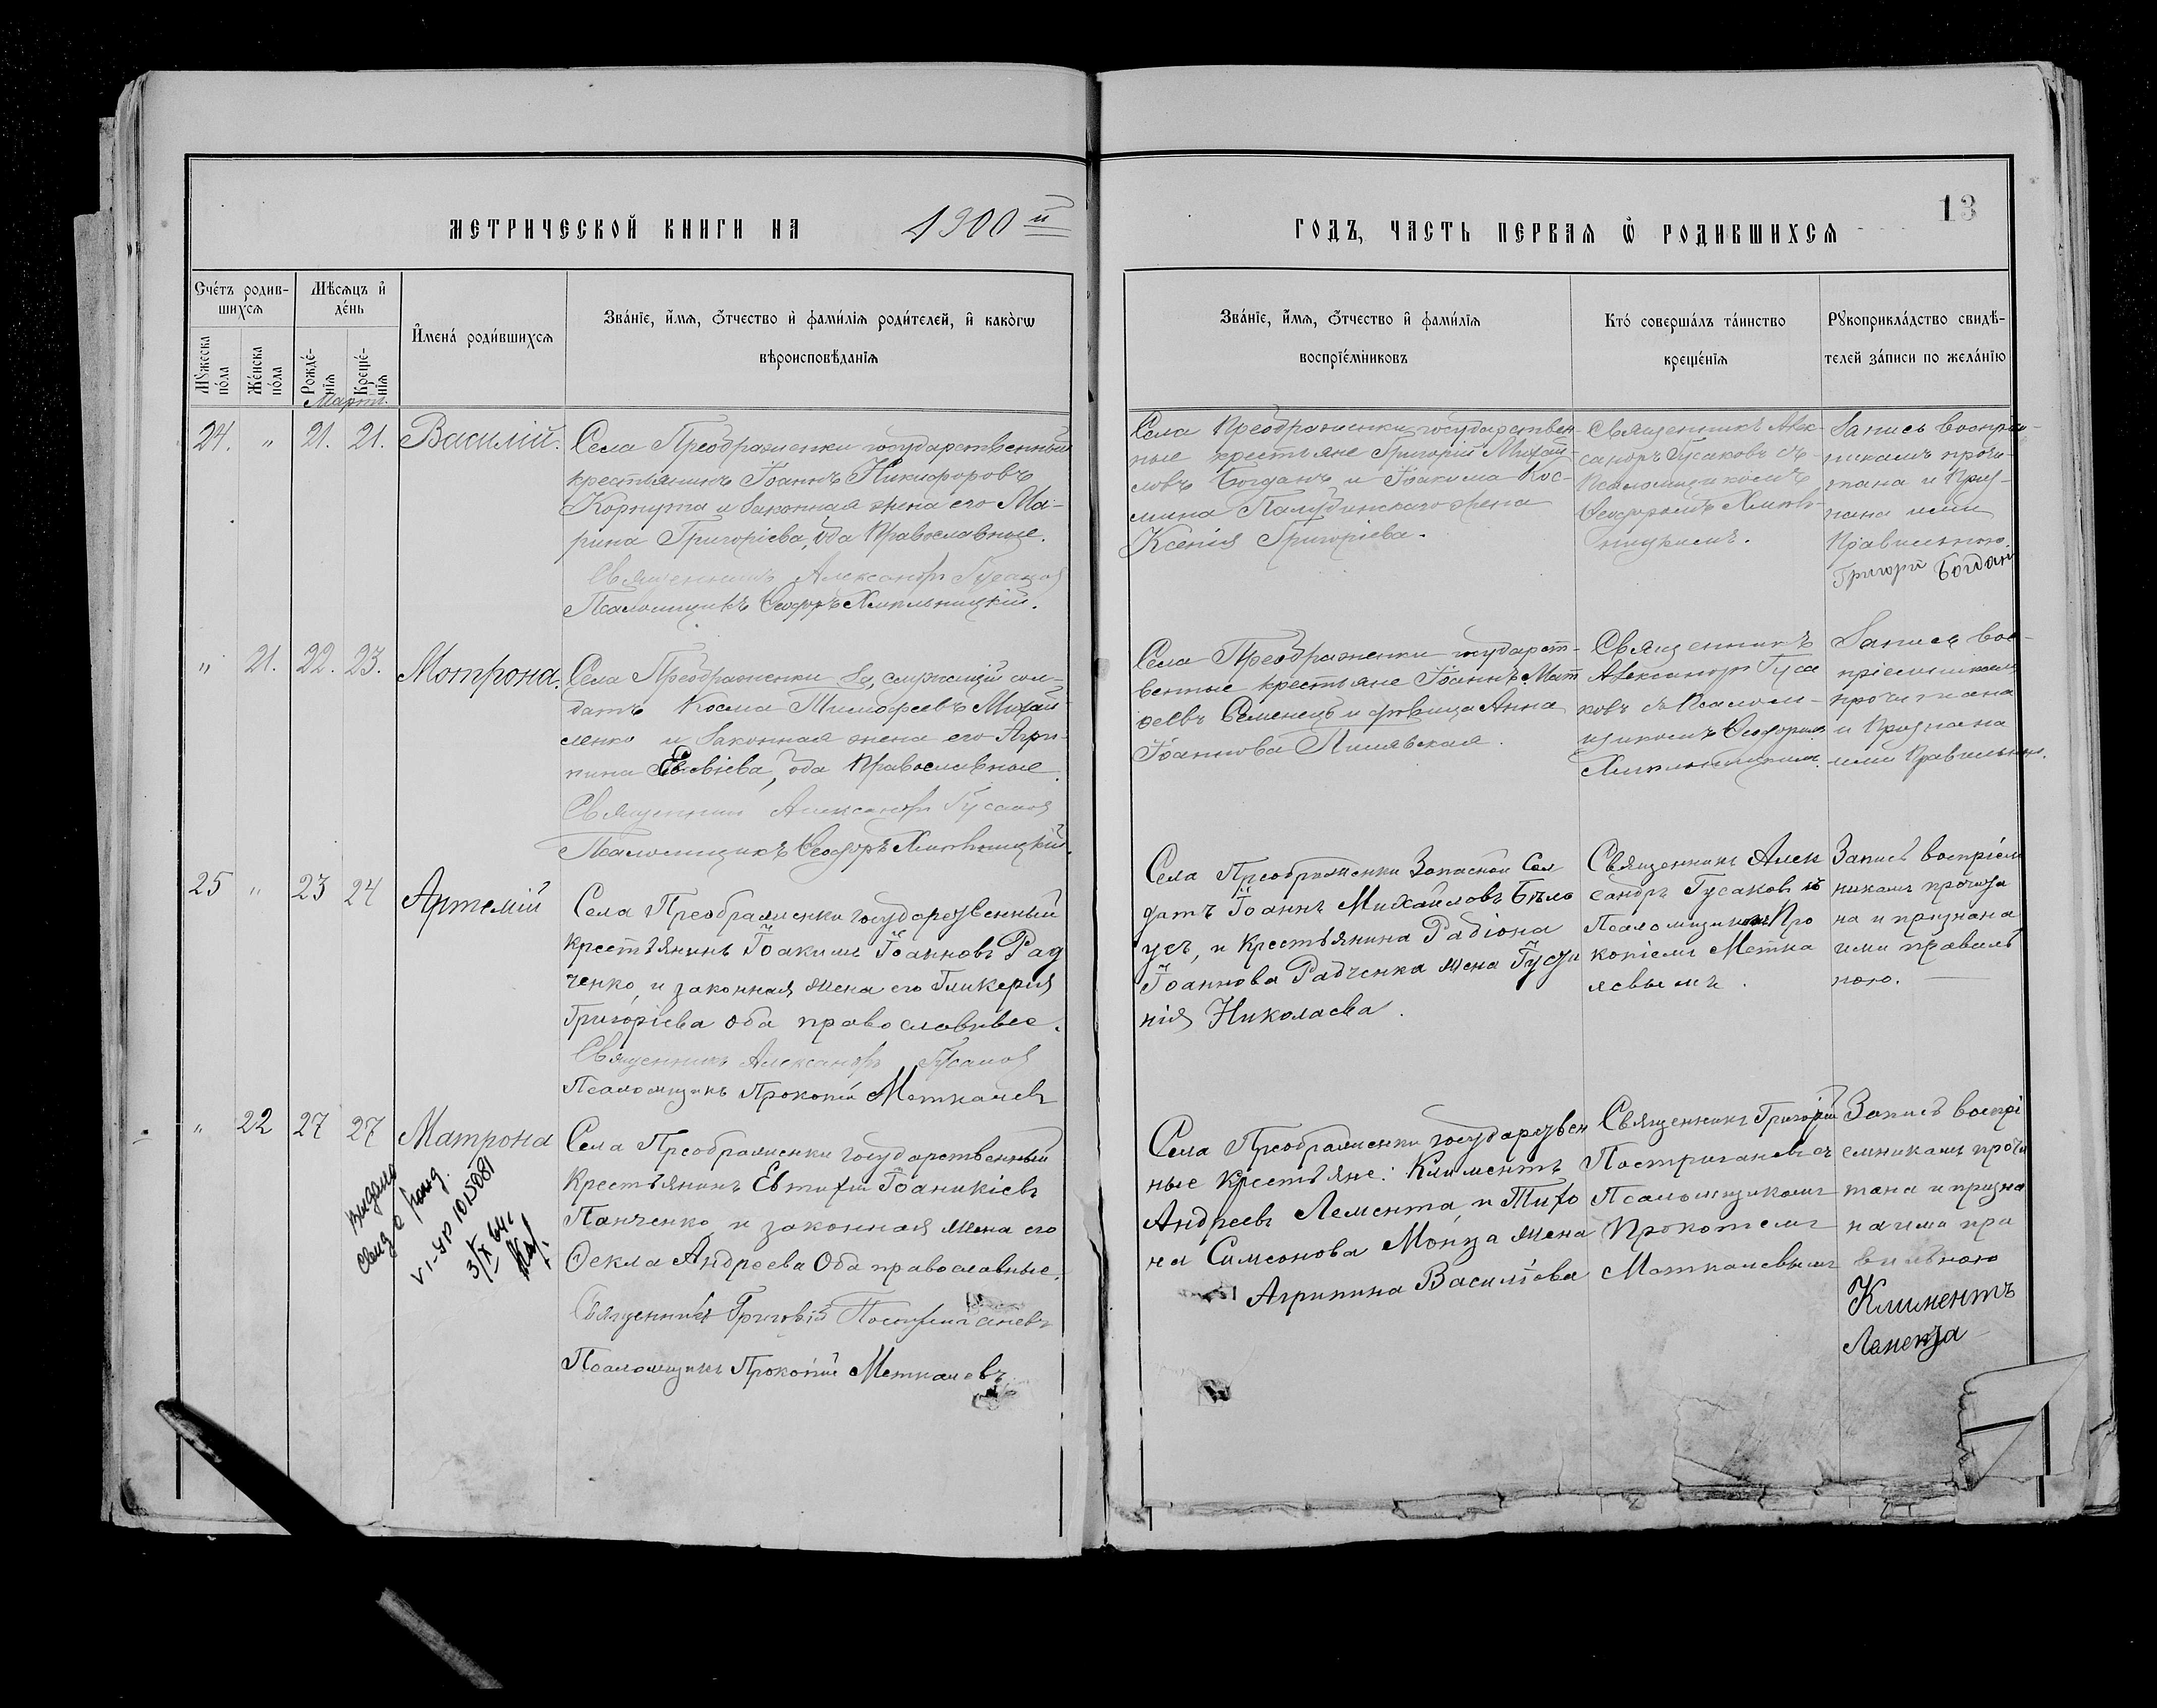 МЕТРИЧЕСКОЙ КНИГИ НА 1900 й
ГОДЪ, ЧАСТЬ ПЕРВАЯ Ѡ РОДИВШИХСЯ
13
Счетъ родив-
шихся
Мѣсяцъ и
день
Имена родившихся
Званіе, имя, отчество и фамилія родителей, и какогѡ
вѣроисповѣданія
Мужеска
пола
Женска
пола
Рожде-
нія
Креще-
нія
Званіе, имя, отчество и фамилія
воспріемниковъ
Кто совершалъ таинство
крещенія
Рукоприкладство свидѣ-
телей записи по желанію
Март.
24. " 21. 21. Василій.
Села Преображенки государственный
крестьянинъ Іоаннъ Никифоровъ
Корпута и законная жена его Ма-
рина Григоріева, оба Православные.
Священникъ Александръ Гусаковъ
Псаломщикъ Ѳеодоръ Хмельницкій.
Села Преображенки государствен-
ные крестьяне Григорій Михай-
ловъ Богданъ и Іоакима Кос-
мина жена
Ксенія Григоріева.
Священникъ Алек-
сандръ Гусаковъ съ
Псаломщикомъ
Ѳеодоромъ Хмель-
ницкимъ.
Запись воспріем-
никамъ прочи-
тана и Приз-
нана ими
Правильною.
Григорій Богдан
" 21. 22. 23. Мотрона.
Села Преображенки За, служащій сол-
датъ Косма Тимофеевъ Михай-
ленко и Законная жена его Агри-
пина оба Православные.
Священник Александръ Гусаковъ
Псаломщикъ Ѳеодоръ Хмельницкій.
Села Преображенки государст-
венные крестьяне Іоаннъ Мат
ѳеевъ Семенецъ и дѣвица Анна
Іоаннова
Священникъ
Александръ Гуса
ковъ съ Псалом-
щикомъ Ѳеодоромъ
Хмельницкимъ.
Запись вос-
пріемникамъ
прочитана
и Признана
ими Правильною.
25 " 23 24 Артемій
Села Преображенки государственный
крестьянинъ Іоакимъ Іоанновъ Рад
ченко, и законная жена его Гликерія
Григоріева оба православные.
Священникъ Александръ Гусаковъ
Псаломщикъ Прокопій Меткалевъ
Села Преображенки Запасной Сол
датъ Іоаннъ Михайловъ Бѣло
усъ, и Крестьянина Радіона
Іоаннова Радченка жена Іусти
нія Николаева.
Священникъ Алек
сандръ Гусаковъ съ
Псаломщикомъ Про
копіемъ Метка
левымъ.
Запись воспріем
никамъ прочита
на и признана
ими правиль
ною.
" 22 27 27 Матрона
Села Преображенки государственный
Крестьянинъ Евтихій Іоаникіевъ
Панченко, и законная жена его
Ѳекла Андреева Оба православные.
Священникъ Григорій Постригановъ
Псаломщикъ Прокопій Меткалевъ
Села Преображенки государствен
ные Крестьяне: Климентъ
Андреевъ Лемента, и Тихо
на Симеонова жена
Агрипина Василіева
Священникъ Григорій
Псаломщикомъ
Прокопіемъ
Меткалевымъ
Запись воспрі
емникамъ прочи
тана и призна
на ими пра
вильною
Климентъ
Лемента
Выдано
VI-УР 1015081
3/IX 64г.